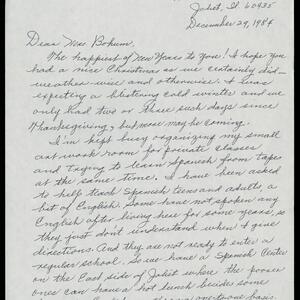 Joliet, Il 60435
December 29, 1984
Dear Mrs Bohum,
The happiest of New Years to you! I hope you
had a nice Christmas as we certainly did—
weather-wise and otherwise. I was
expecting a blistering cold winter and we
only had two or three such days since
Thanksgiving, but more may be coming.
I'm kept busy organizing my small
art work room for private classes
and trying to learn Spanish from tapes
at the same time. I have been asked
to help teach Spanish teens and adults, a
bit of English. Some have not spoken any
English after living here for some years, so
they just don't understand when I give
directions. And they are not ready to enter a
regular school. So we have a Spanish Center
on the East side of Joliet where the poorer
ones can have a hot lunch besides some